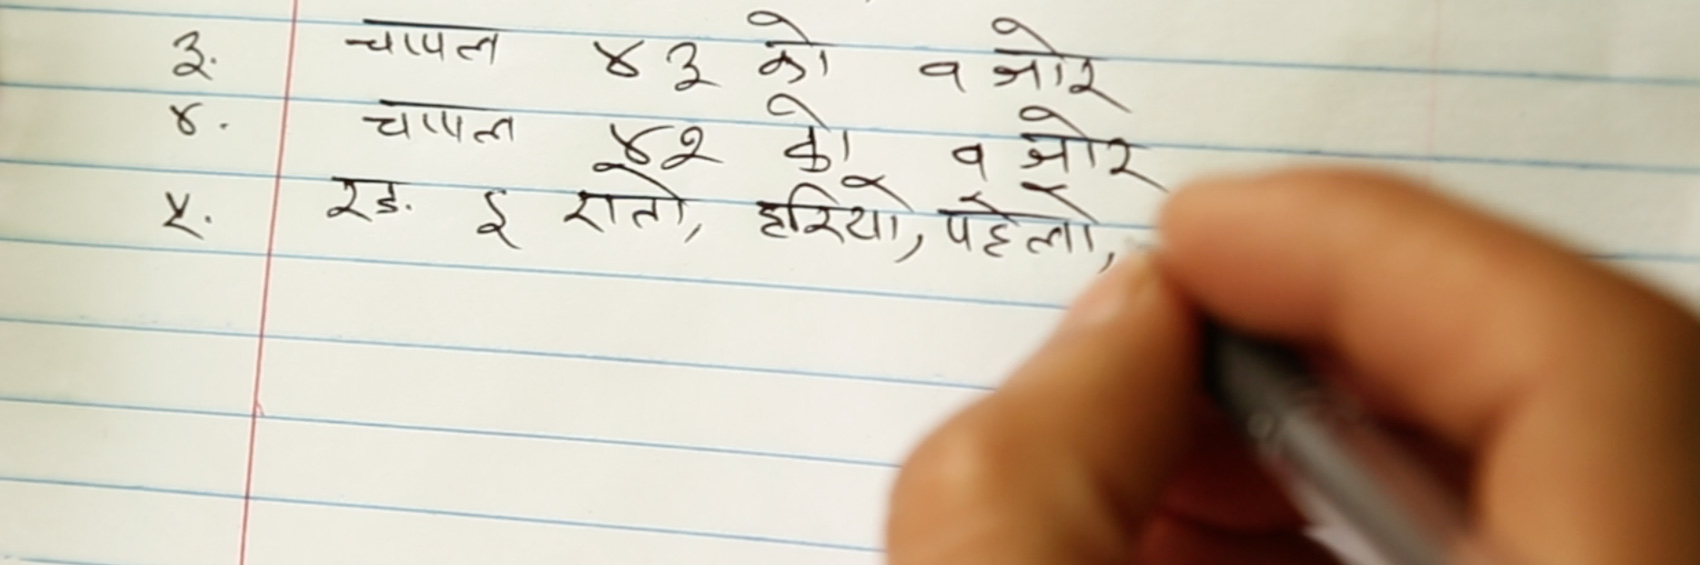 ३. चापल ४३ को व जोर
४. चापल ४२ को व जोर
५. रङ. ई रातो, हरियो, पहेलो,